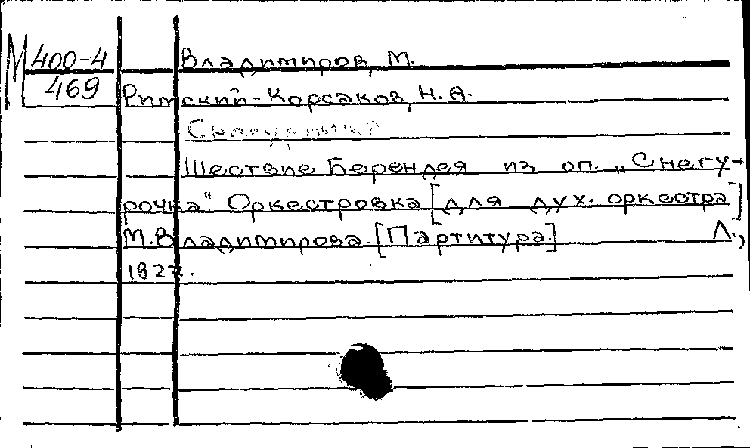 М 400-4 Владимиров, М.
469 Римский-Корсаков, Н. А.
Снегурочка
Шествие Берендея из оп. „Снегу-
рочка" Оркестровка [для дух. оркестра]
М. Владимирова. [Партитура.] Л.,
1927.